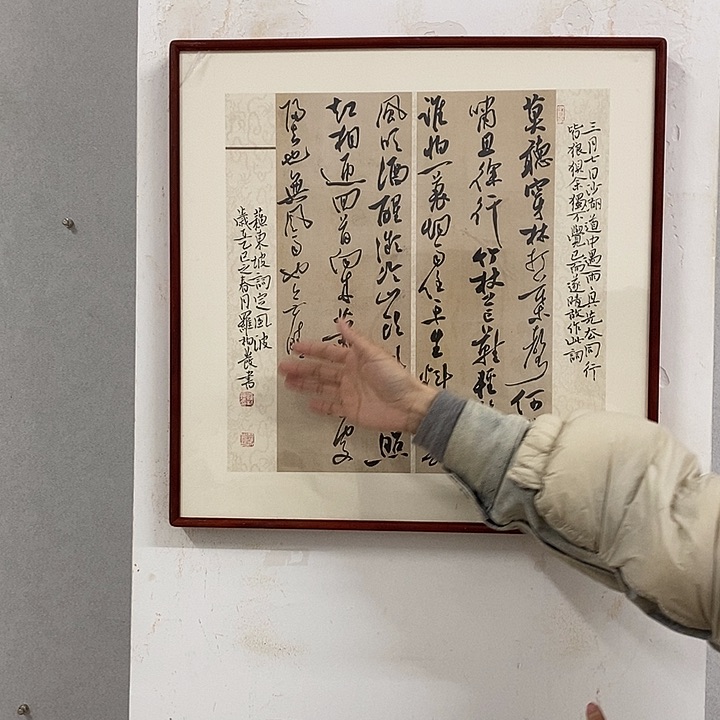 三月七日沙湖道中遇雨具先去同行
皆狼狽余獨不覺已而遂晴故作此詞
莫聽穿林打葉聲何
嘯且徐行竹杖芒鞋輕
誰怕一蓑烟雨任平生料
風吹酒醒微冷山頭照
却相迎回首向來蕭處
歸去也無風雨也無晴
蘇東坡詞定風波
歲在乙巳之春月羅書